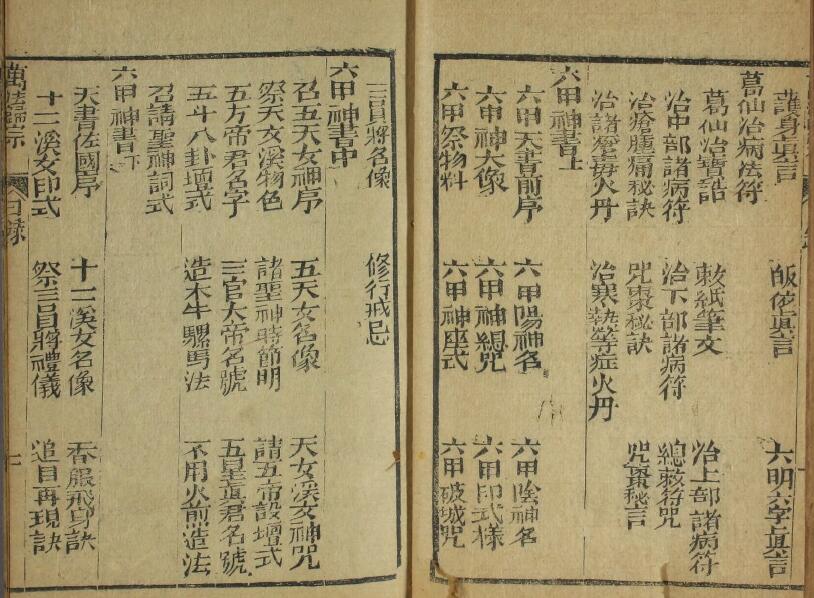 護身真言　皈依真言　六明六字真言
葛仙治病法符
葛仙治寶誥　敕紙筆文　治上部諸病符
治中部諸病符　治下部諸病符　總敕符咒
治瘡腫痛秘訣　咒棗秘訣　咒棗秘言
治諸瘧毒火丹　治寒熱等症火丹
六甲神書上
六甲天書前序　六甲陽神名　六甲陰神名
六甲神大像　六甲神總咒　六甲印式樣
六甲祭物料　六甲神座式　六甲破城咒
三員將名像　修行戒忌
六甲神書中
召五天女神序　五天女名像　天女溪女神咒
祭天文溪物色　諸聖神時節明　請五帝設壇式
五方帝君名字　三官大帝名號　五星真君名號
五斗八卦壇式　造木牛騾馬法　不用火煎造法
召請聖神詞式
六甲神書下
天書佐國序　十二溪女名像　香服飛身訣
十二溪女印式　祭三員將禮儀　追目再現訣
萬法歸宗　目錄　二